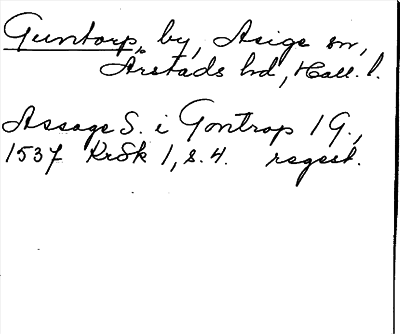 Guntorp, by, Asige sn,
Årstads hd, Hall. l.
Assage S. i Gontrop 1 G.,
1537 KrSk 1, s. 4. regest.